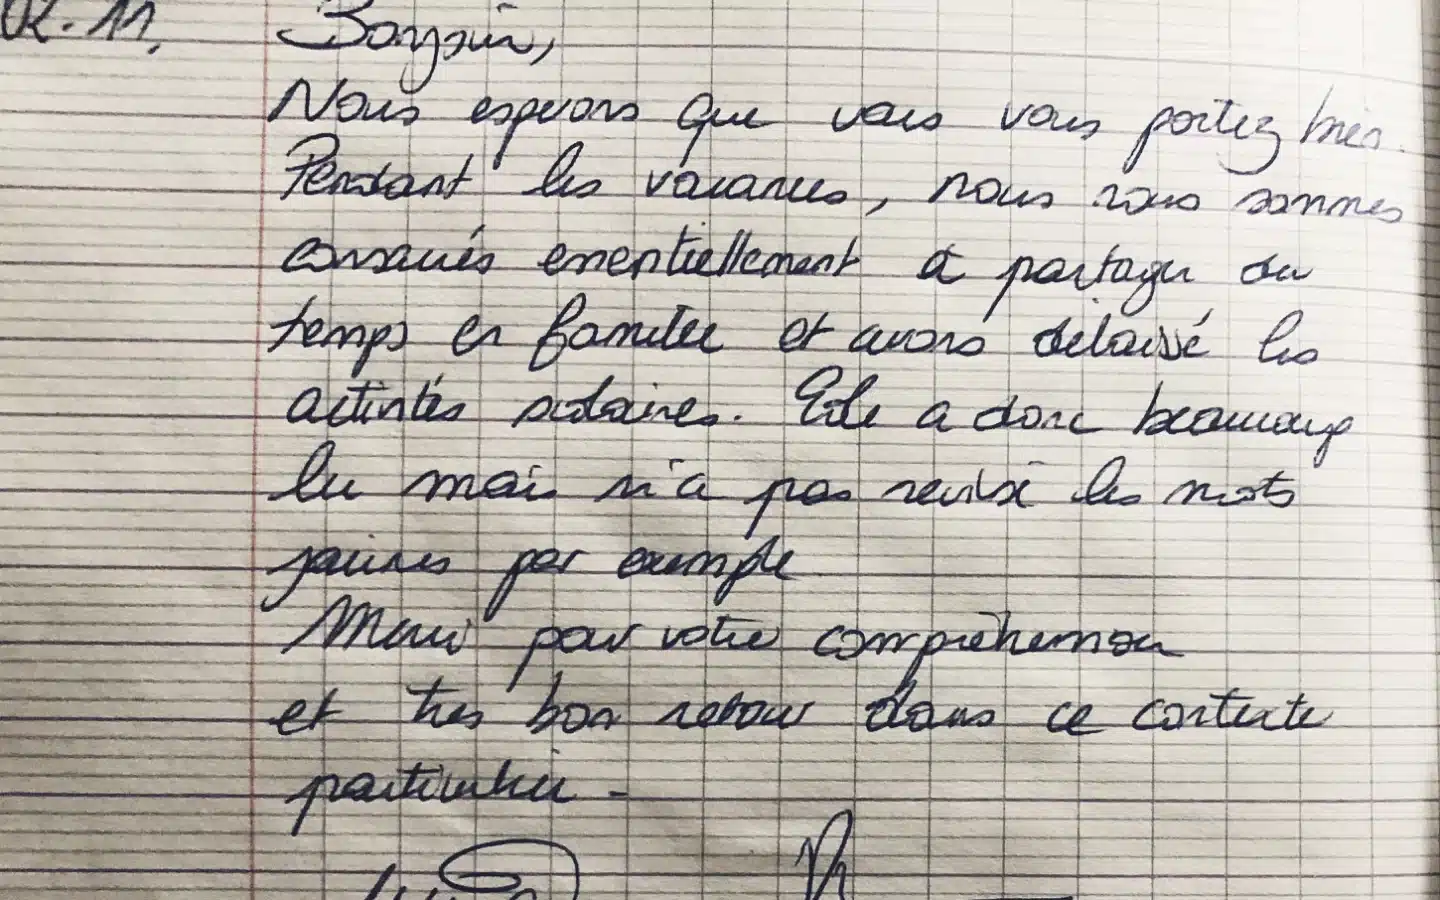 02.11. Bonjour,
Nous espérons que vous vous portez bien.
Pendant les vacances, nous nous sommes
consacrés essentiellement à partager du
temps en famille et avons délaissé les
activités scolaires. a donc beaucoup
lu mais n'a pas révisé les mots
jaunes par exemple
Merci pour votre compréhension
et très bon retour dans ce contexte
particulier -